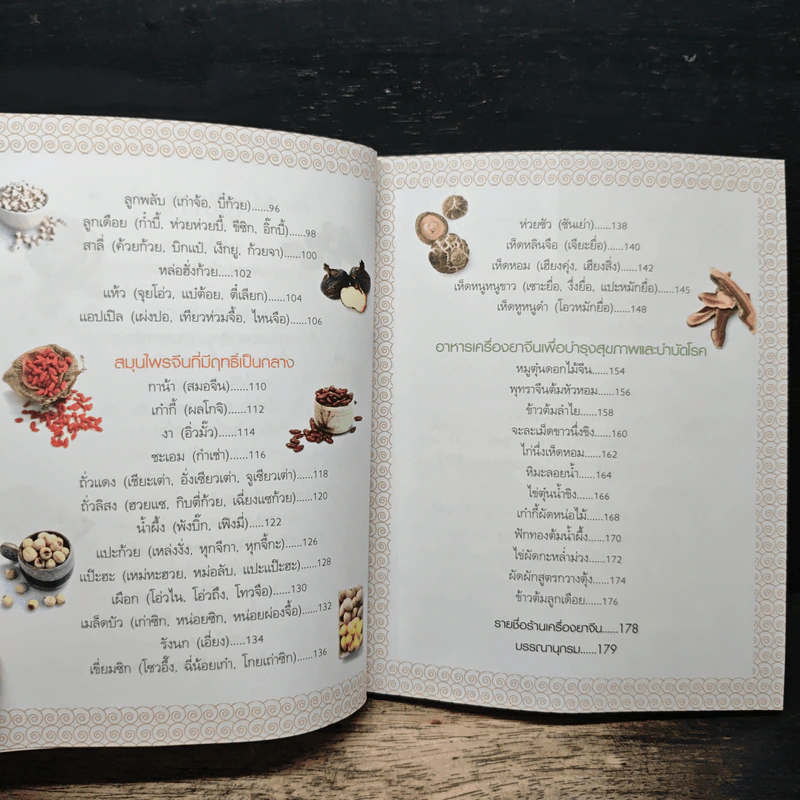 ลูกพลับ (เก่าจ้อ, บี่ก้วย)......96
ลูกเดือย (ก๋ำบี้, ห่วยห่วยบี้, ชีซิก, อิ๊กบี้)......98
สาลี่ (ค้วยก้วย, บิกแป๋, เง็กยู, ก้วยจา)......100
หล่อฮั่งก้วย......102
แห้ว (จุยโอ่ว, แบ๋ต้อย, ตี่เลียก)......104
แอปเปิล (เผ่งปอ, เทียวห่วมจื้อ, ไหนจือ)......106
สมุนไพรจีนที่มีฤทธิ์เป็นกลาง
กาน้า (สมอจีน)......110
เก๋ากี้ (ผลโกจิ)......112
งา (อิ่วมั๊ว)......114
ชะเอม (กำเช่า)......116
ถั่วแดง (เชียะเต่า, อั่งเชียวเต่า, จูเชียวเต่า)......118
ถั่วลิสง (ฮวยแซ, กิบตี่ก้วย, เฉี่ยงแซก้วย)......120
น้ำผึ้ง (พังบิ๊ก, เฟิงมี่).....122
แปะก้วย (เหล่งงั่ง, ทุกจีกา, ทุกจี้กะ)......126
แป๊ะฮะ (เหม่หะฮวย, หม่อลับ, แปะแป๊ะฮะ)......128
เผือก (โอ่วไน, โอ่วถึง, โทวจือ)......130
เมล็ดบัว (เก่าซิก, หน่อยซิก, หน่อยผ่องจื้อ)......132
รังนก (เอี่ยง)......134
เขี่ยมซิก (โซวอึ๊ง, ฉี่น้อยเก๋า, โกยเถ่าซิก)......136
ห่วยซัว (ซันเย่า)......138
เห็ดหลินจือ (เจียะยื่อ)......140
เห็ดหอม (เฮียงคุ่ง, เฮียงสิ่ง)......142
เห็ดหูหนูขาว (เซาะยื่อ, งึ่งยื่อ, แปะหมักยื่อ)......145
เห็ดหูหนูดำ (โอวหมักยื่อ)......148
อาหารเครื่องยาจีนเพื่อบำรุงสุขภาพและบำบัดโรค
หมูตุ๋นดอกไม้จีน......154
พุทราจีนต้มหัวหอม......156
ข้าวต้มลำไย......158
จะละเม็ดขาวนึ่งขิง......160
ไก่นึ่งเห็ดหอม......162
หิมะลอยน้ำ......164
ไข่ตุ๋นน้ำขิง......166
เก๋ากี้ผัดหน่อไม้......168
ฟักทองต้มน้ำผึ้ง......170
ไข่ผัดกะหล่ำม่วง......172
ผัดผักสูตรกวางตุ้ง......174
ข้าวต้มลูกเดือย......176
รายชื่อร้านเครื่องยาจีน......178
บรรณานุกรม......179